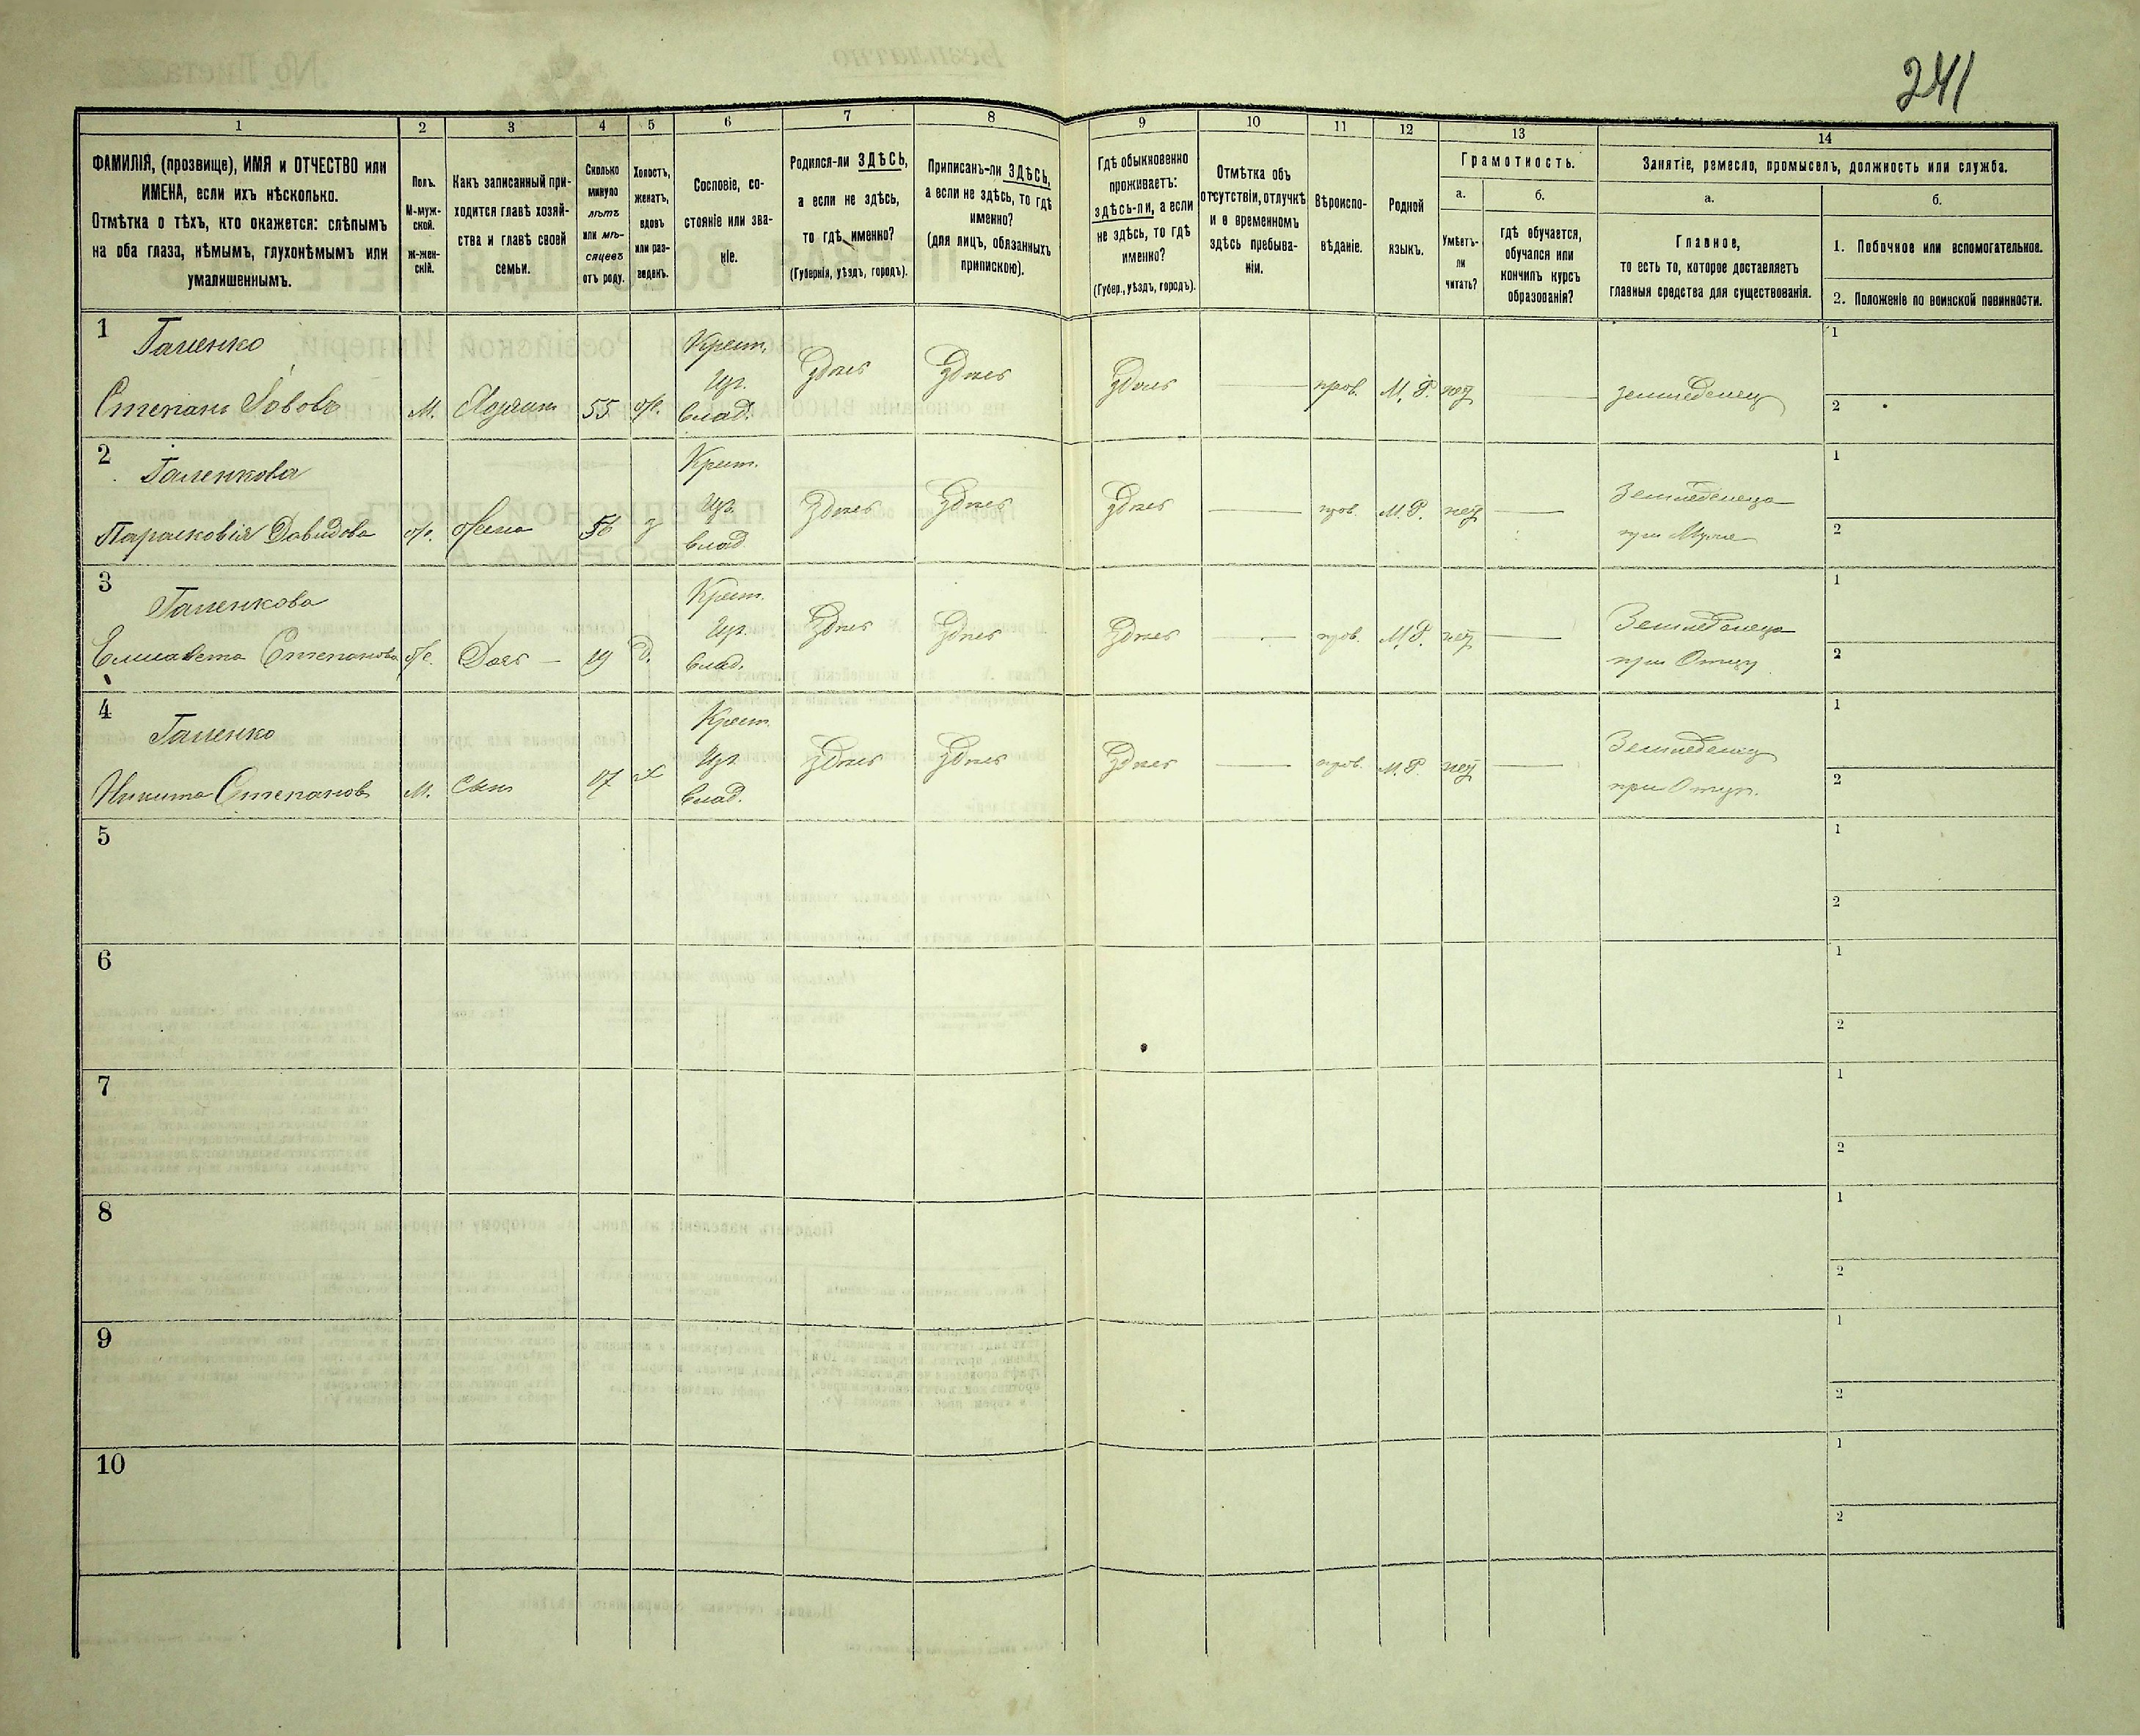 241
1 2 3 4 5 6 7 8 9 10 11 12 13 14
ФАМИЛІЯ, (прозвище), ИМЯ и ОТЧЕСТВО или
ИМЕНА, если ихъ нѣсколько.
Отмѣтка о тѣхъ, кто окажется: слѣпымъ
на оба глаза, нѣмымъ, глухонѣмымъ или
умалишеннымъ.
Полъ.
М-муж-
ской.
Ж-жен-
скій.
Какъ записанный при-
ходится главѣ хозяй-
ства и главѣ своей
семьи.
Сколько
минуло
лѣтъ
или мѣ-
сяцевъ
отъ роду.
Холостъ,
женатъ,
вдовъ
или раз-
веденъ.
Сословіе, со-
стояніе или зва-
ніе.
Родился-ли ЗДѢСЬ,
а если не здѣсь,
то гдѣ именно?
(Губернія, уѣздъ, городъ).
Приписанъ-ли ЗДѢСЬ,
а если не здѣсь, то гдѣ
именно?
(для лицъ, обязанныхъ
припискою).
Гдѣ обыкновенно
проживаетъ:
здѣсь-ли, а если
не здѣсь, то гдѣ
именно?
(Губер., уѣздъ, городъ).
Отмѣтка объ
отсутствіи, отлучкѣ
и о временномъ
здѣсь пребыва-
ніи.
Вѣроиспо-
вѣданіе.
Родной
языкъ.
Грамотность.
а.
Умѣетъ-
ли
читать?
б.
гдѣ обучается,
обучался или
кончилъ курсъ
образованія?
Занятіе, ремесло, промыселъ, должность или служба.
а.
Главное,
то есть то, которое доставляетъ
главныя средства для существованія.
б.
1. Побочное или вспомогательное.
2. Положеніе по воинской повинности.
1
Степанъ М. 55 Крест. влад. Здѣсь Здѣсь Здѣсь прав. М. Р. нет 1
2
2
Давидова жена Крест. влад. Здѣсь Здѣсь Здѣсь М. Р. нет при Муже 1
2
3
Елисавета Степанова Дочь 19 Д. Крест. влад. Здѣсь Здѣсь Здѣсь М. Р. нет при Отцу 1
2
4
Никита Степановъ М. Сынъ 17 х Крест. влад. Здѣсь Здѣсь Здѣсь М. Р. нет при Отцу. 1
2
5 1
2
6 1
2
7 1
2
8 1
2
9 1
2
10 1
2